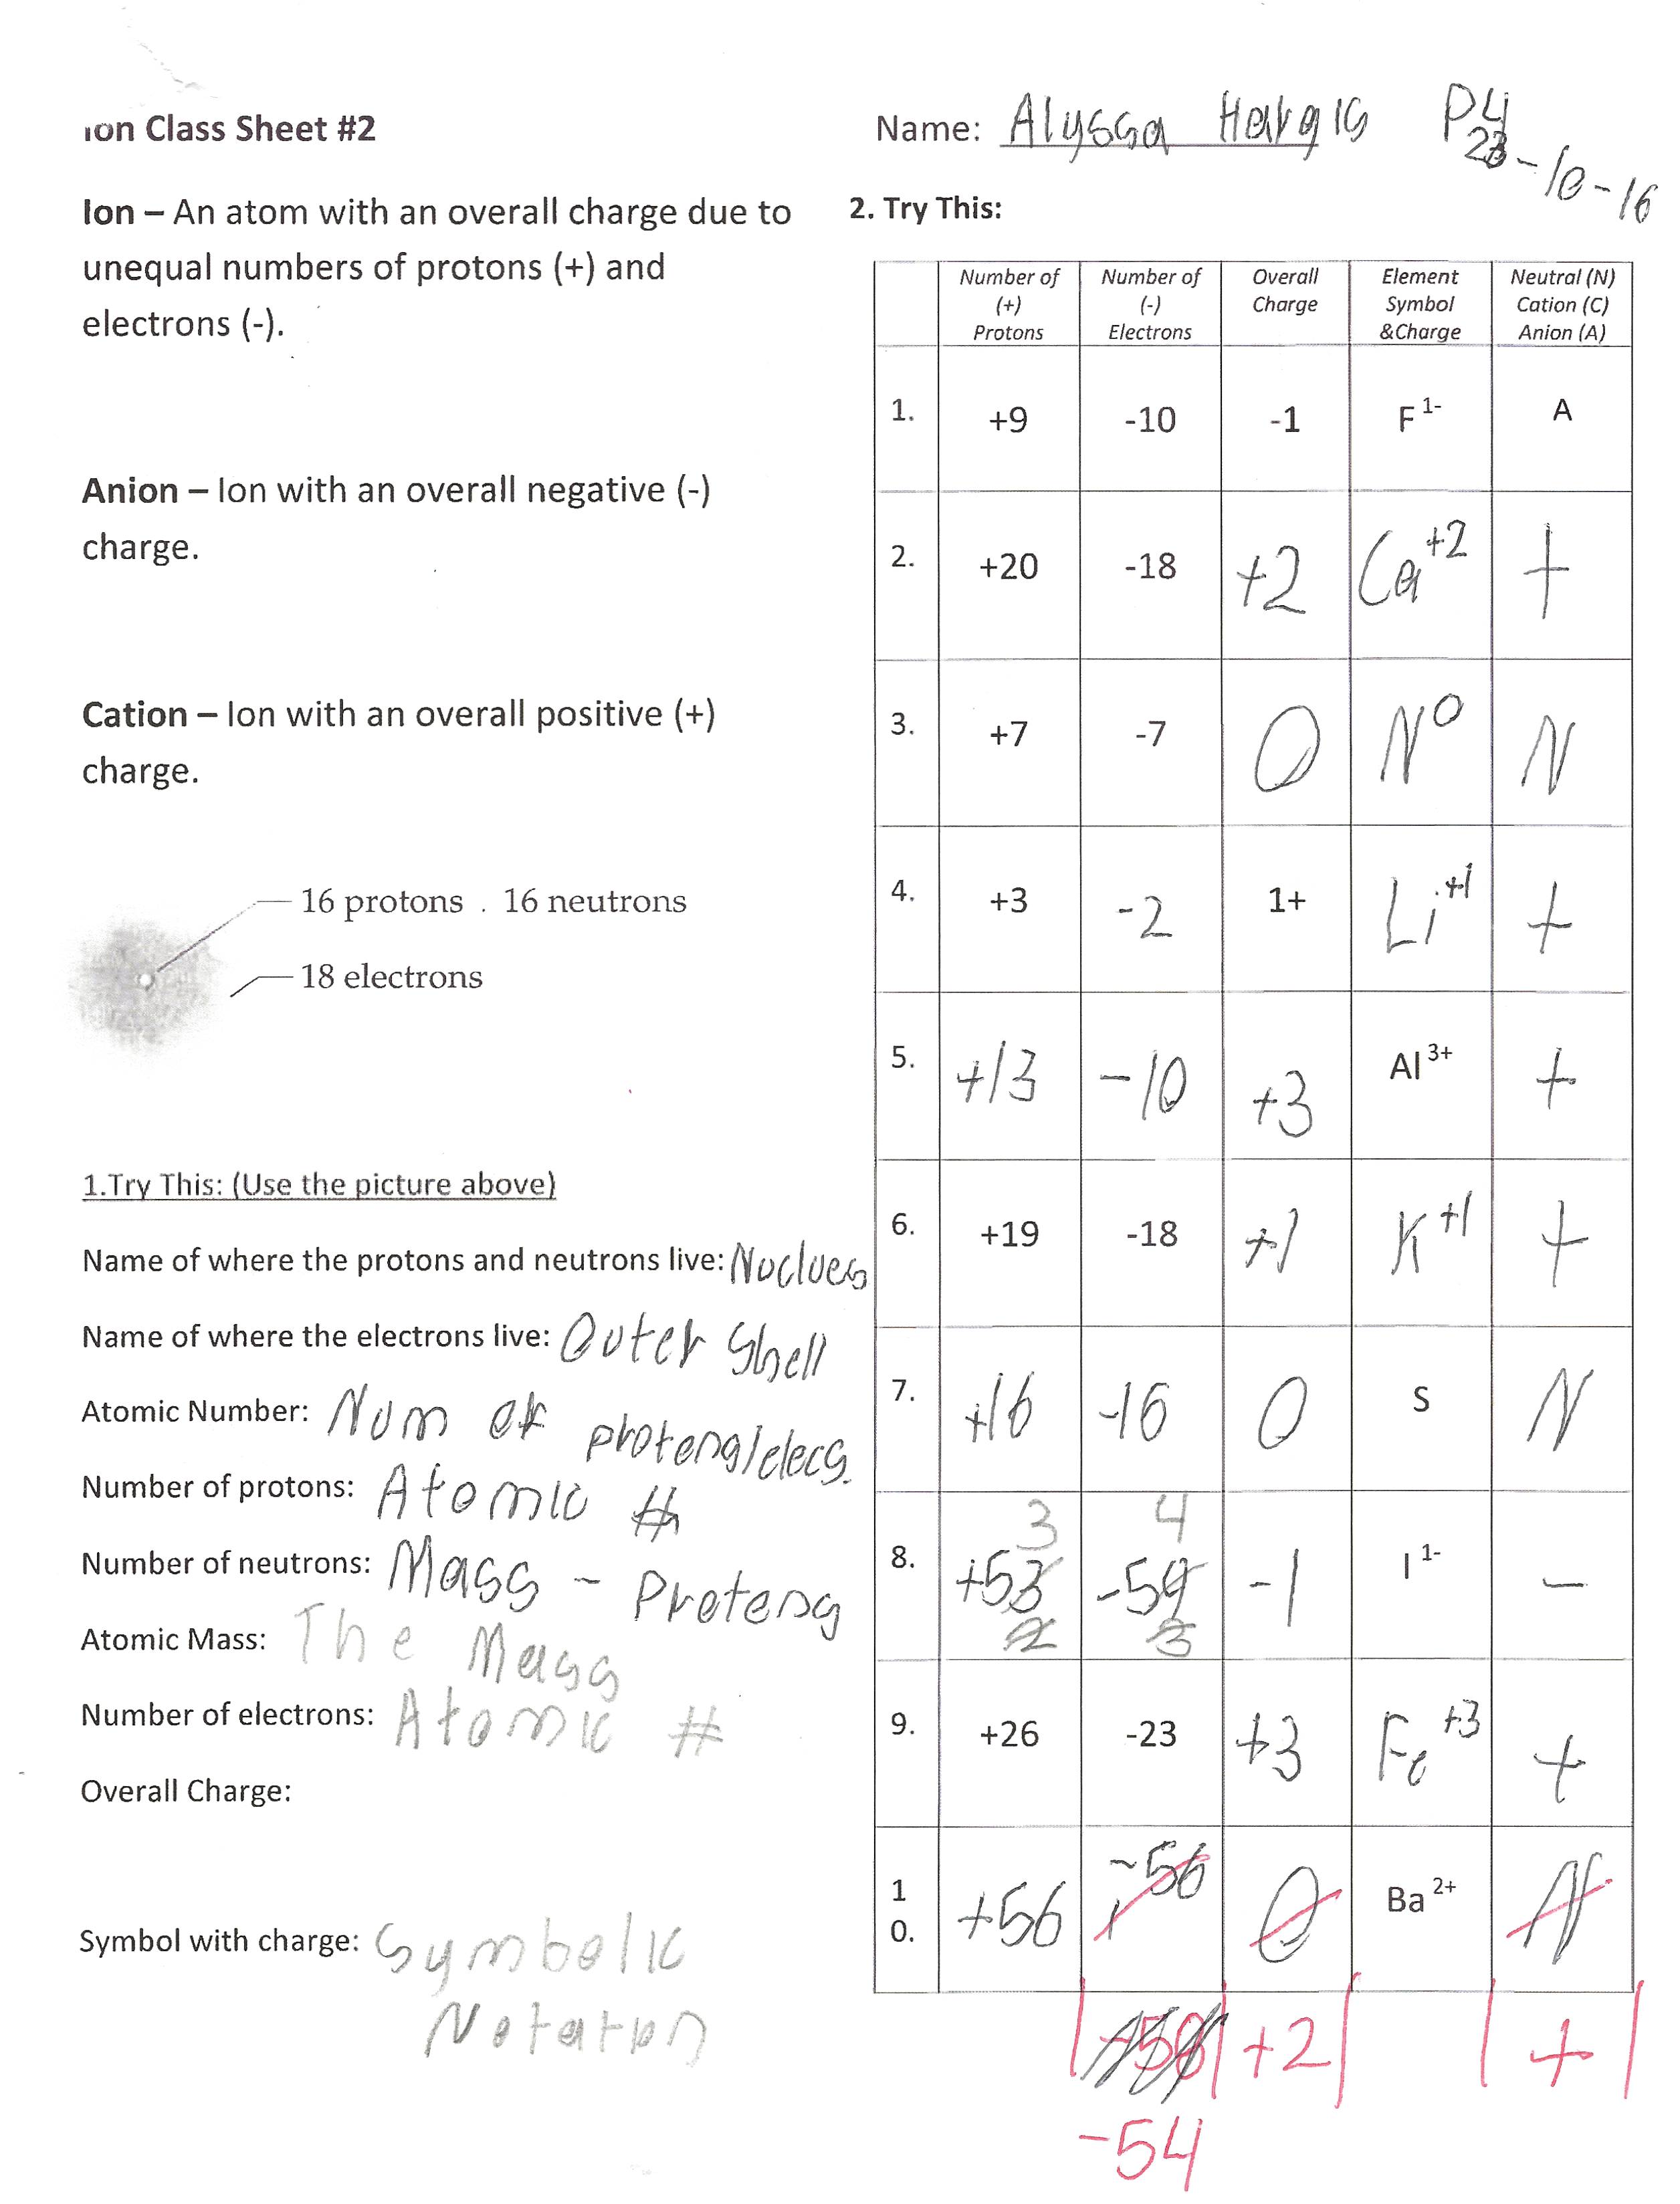 Ion Class Sheet #2
Name: Alyssa Hargis P4
23-10-16
Ion – An atom with an overall charge due to
unequal numbers of protons (+) and
electrons (-).
Anion – Ion with an overall negative (-)
charge.
Cation – Ion with an overall positive (+)
charge.
16 protons . 16 neutrons
18 electrons
1.Try This: (Use the picture above)
Name of where the protons and neutrons live: Noclues
Name of where the electrons live: Outer Shell
Atomic Number: Num of protons/elecs.
Number of protons: Atomic #
Number of neutrons: Mass - Protons
Atomic Mass: The Mass
Number of electrons: Atomic #
Overall Charge:
Symbol with charge: Symbolic
Notation
2. Try This:
Number of (+) Protons Number of (-) Electrons Overall Charge Element Symbol &Charge Neutral (N) Cation (C) Anion (A)
1. +9 -10 -1 F 1- A
2. +20 -18 +2 Ca+2 +
3. +7 -7 0 N0 N
4. +3 -2 1+ Li+1 +
5. +13 -10 +3 Al 3+ +
6. +19 -18 +1 K+1 +
7. +16 -16 0 S N
3 4
8. +53 -54 -1 I 1- -
2 3
9. +26 -23 +3 Fe+3 +
10. +56 -56 0 Ba 2+ N
+2 +
-54